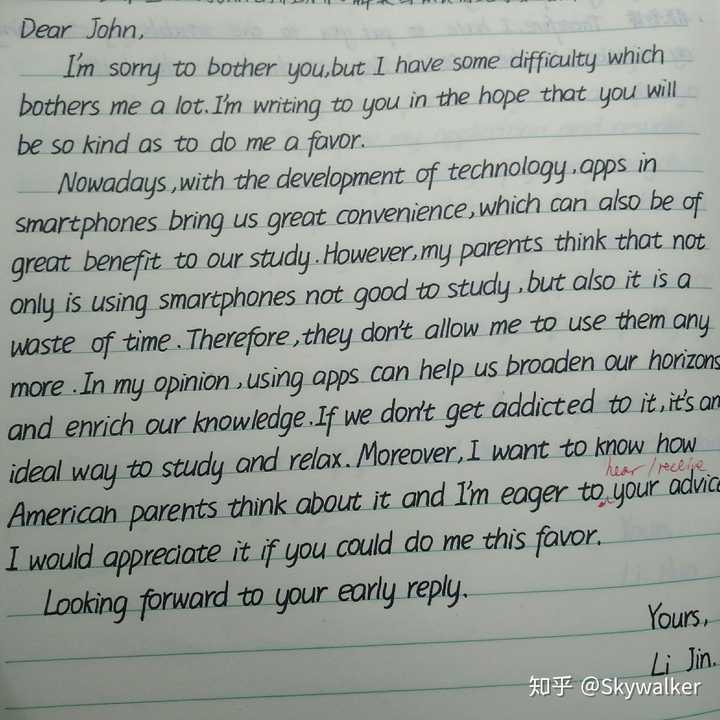 Dear John,
I'm sorry to bother you, but I have some difficulty which
bothers me a lot. I'm writing to you in the hope that you will
be so kind as to do me a favor.
Nowadays, with the development of technology, apps in
smartphones bring us great convenience, which can also be of
great benefit to our study. However, my parents think that not
only is using smartphones not good to study, but also it is a
waste of time. Therefore, they don't allow me to use them any
more. In my opinion, using apps can help us broaden our horizons
and enrich our knowledge. If we don't get addicted to it, it's an
ideal way to study and relax. Moreover, I want to know how
hear / receive
American parents think about it and I'm eager to your advice
I would appreciate it if you could do me this favor.
Looking forward to your early reply.
Yours,
Li Jin.
知乎 @Skywalker